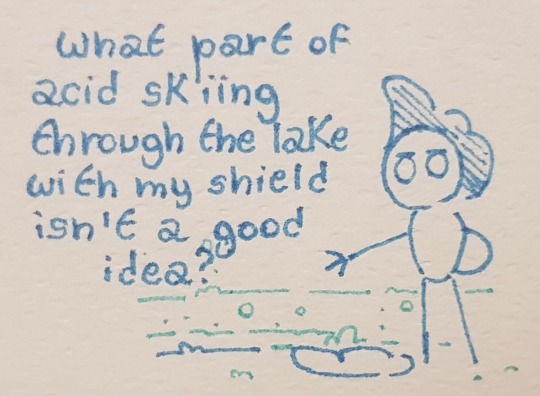 what part of
acid skiing
through the lake
with my shield
isn't a good
idea?